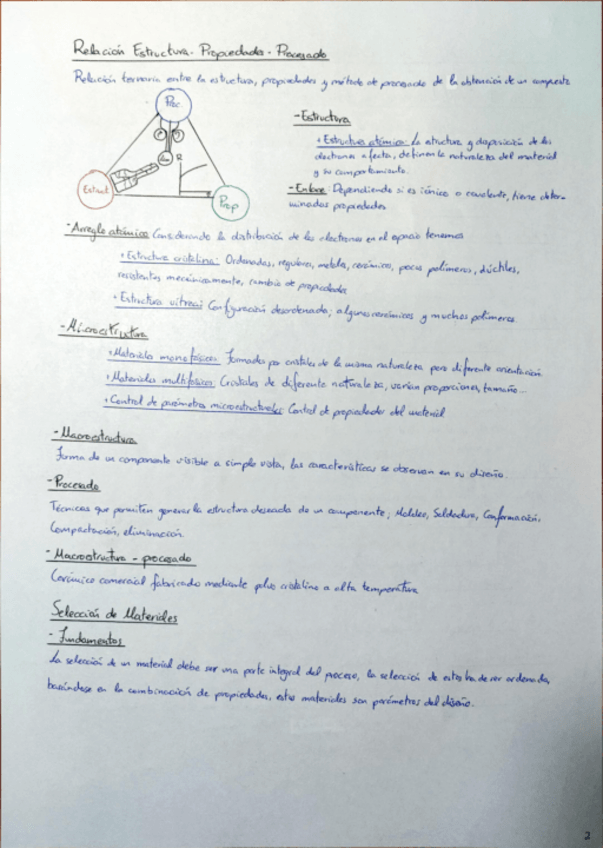 Relación Estructura - Propiedades - Procesado
Relación ternaria entre la estructura, propiedades y método de procesado de la obtención de un compuesto
Proc.
Estruct
Prop
- Estructura
+ Estructura atómica: La estructura y disposición de los
electrones afecta, definen la naturaleza del material
y su comportamiento.
- Enlace: Dependiendo si es iónico o covalente, tiene deter-
minadas propiedades
- Arreglo atómico Considerando la distribución de los electrones en el espacio tenemos
+ Estructura cristalina: Ordenadas, regulares, metales, cerámicos, pocos polímeros, dúctiles,
resistentes mecánicamente, cambio de propiedades
+ Estructura vítrea: Configuración desordenada; algunos cerámicos y muchos polímeros
- Microestructura
+ Materiales monofásicos: Formados por cristales de la misma naturaleza pero diferente orientación
+ Materiales multifásicos: Cristales de diferente naturaleza, varían proporciones, tamaño...
+ Control de parámetros microestructurales: Control de propiedades del material
- Macroestructura
Forma de un componente visible a simple vista, las características se observan en su diseño.
- Procesado
Técnicas que permiten generar la estructura deseada de un componente; Moldeo, Soldadura, Conformación,
Compactación, eliminación.
- Macroestructura - procesado
Cerámico comercial fabricado mediante polvo cristalino a alta temperatura
Selección de Materiales
- Fundamentos
La selección de un material debe ser una parte integral del proceso, la selección de estos ha de ser ordenada,
basándose en la combinación de propiedades, estos materiales son parámetros del diseño.
2